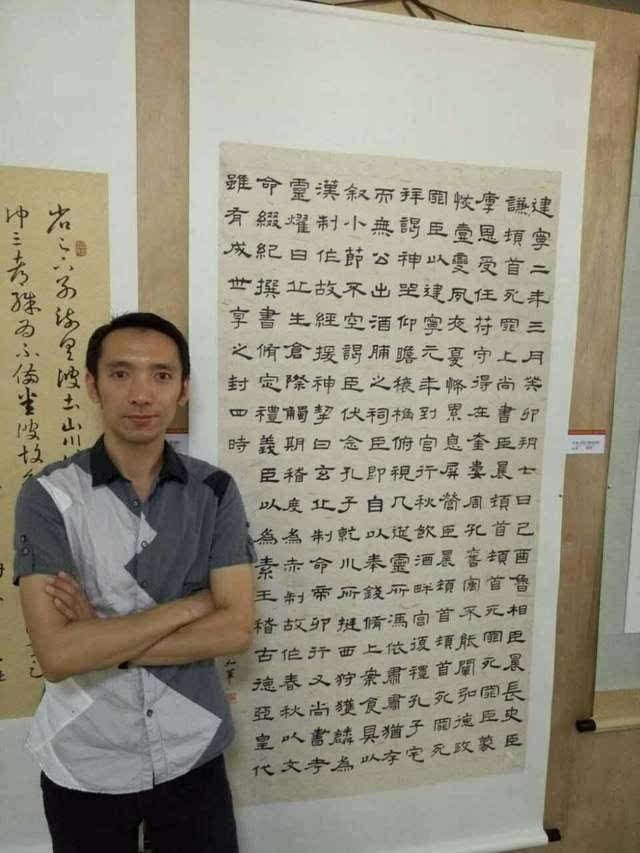 建寧二年三月癸卯朔七日己酉魯相臣晨長史臣
謙頓首死罪上尚書臣晨頓首頓首死罪死罪臣蒙
厚恩受任符守得在奎婁周孔舊寓不能闡弘德政
恢壹變夙夜憂怖累息屏營臣晨頓首頓首死罪死
罪臣以建寧元年到官行秋飲酒畔宮復禮孔子宅
拜謁神坐仰瞻榱桷俯視几筵靈所馮依肅肅猶存
而無公出酒脯之祠臣即自以奉錢脩上案食具以
叙小節不空謁臣伏念孔子乾川所挺西狩獲麟為
漢制作故經援神挈曰玄丘制命帝卯行又尚書考
靈耀曰丘生倉際觸期稽度為赤制故作春秋以文
命綴紀撰書脩定禮義臣以為素王稽古德亞皇代
雖有成世享之封四時